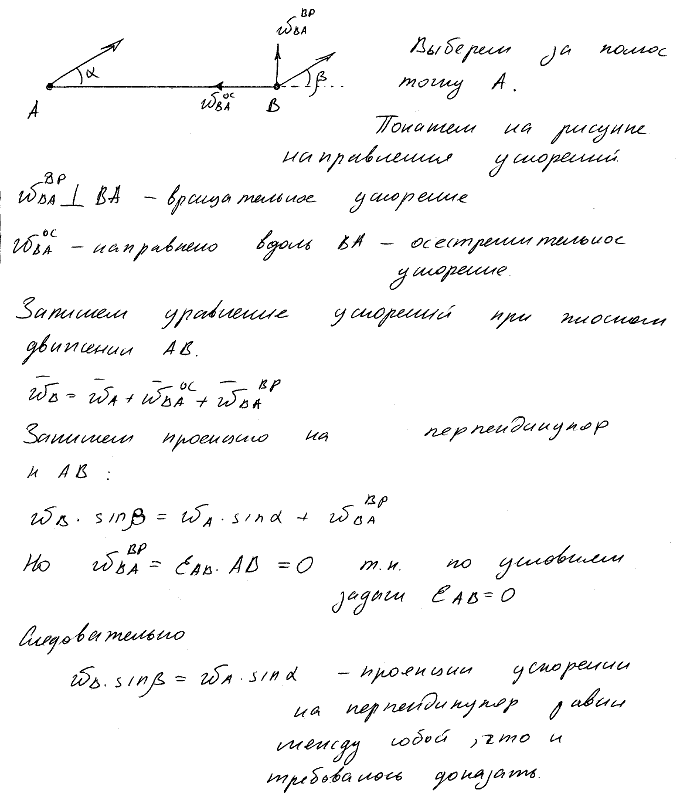 w_BA^ВР
α
β
A
w_BA^ОС
B
Выберем за полюс
точку А.
Покажем на рисунке
направления ускорений.
w_BA^ВР ⊥ BA – вращательное ускорение
w_BA^ОС – направлено вдоль BA – осестремительное
ускорение.
Запишем уравнение ускорений при плоском
движении АВ.
w̄_B = w̄_A + w̄_BA^ОС + w̄_BA^ВР
Запишем проекцию на перпендикуляр
к АВ :
w_B · sinβ = w_A · sinα + w_BA^ВР
Но w_BA^ВР = ε_AB · AB = 0 т.к. по условиям
задачи ε_AB = 0
Следовательно
w_B · sinβ = w_A · sinα – проекции ускорений
на перпендикуляр равны
между собой, что и
требовалось доказать.